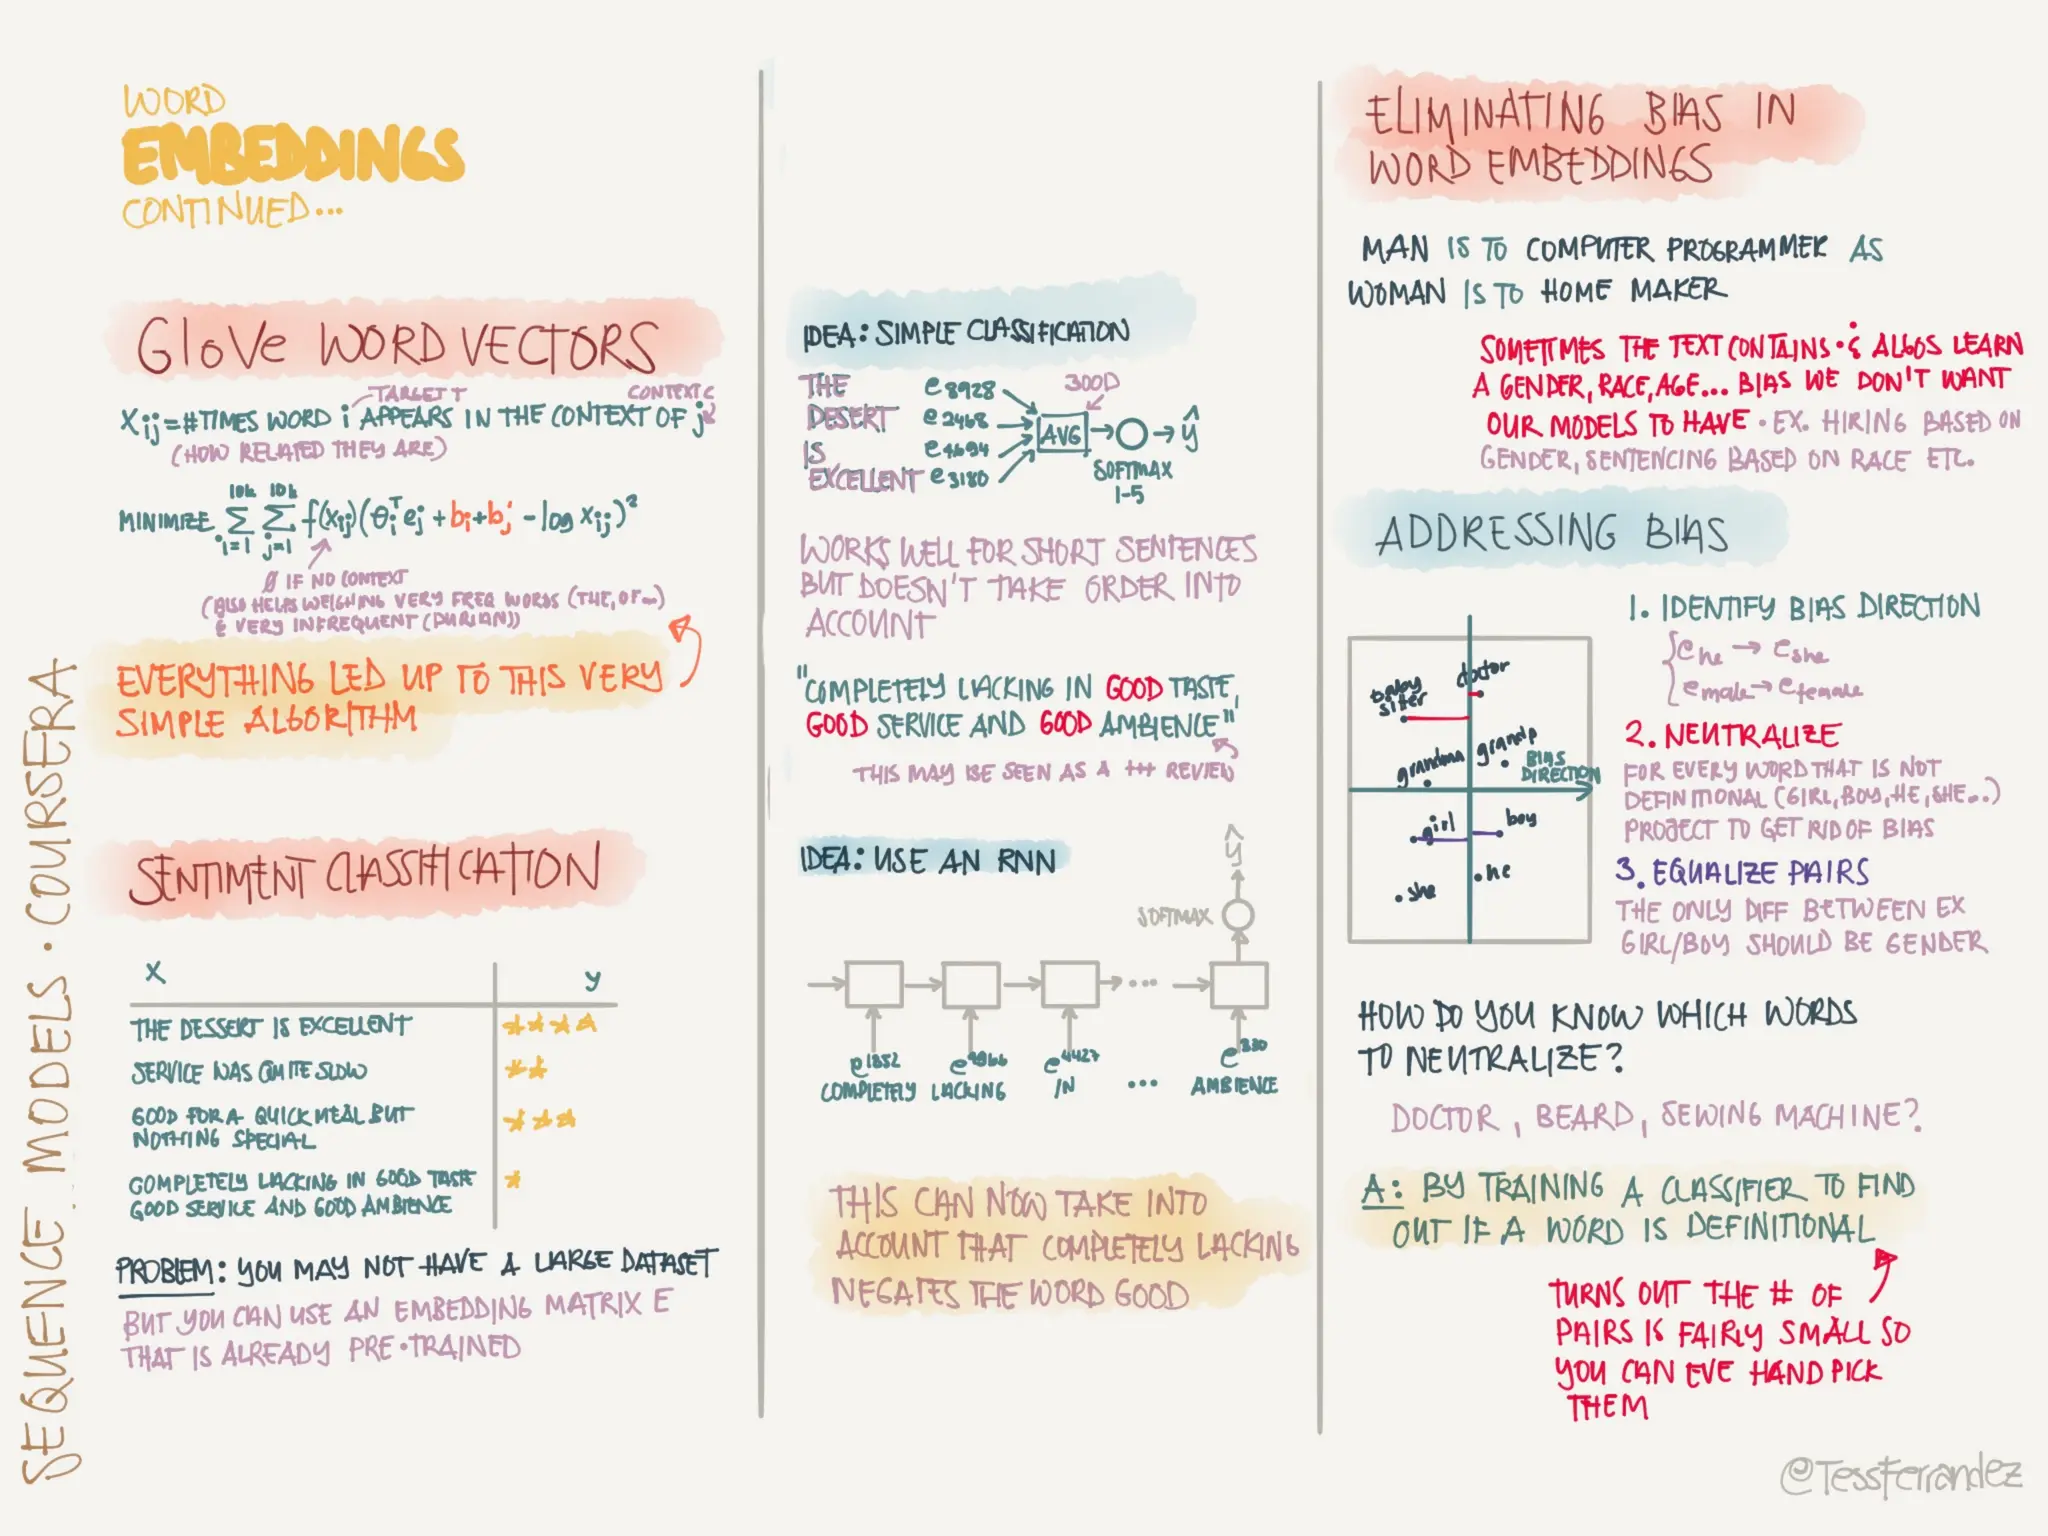 WORD
EMBEDDINGS
CONTINUED...
GloVe WORD VECTORS
TARGET T
CONTEXT C
Xij = # TIMES WORD i APPEARS IN THE CONTEXT OF j
(HOW RELATED THEY ARE)
10k 10k
MINIMIZE Σ Σ f(Xij)(θiᵀej + bi + bj' - log Xij)²
i=1 j=1
Ø IF NO CONTEXT
(ALSO HELPS WEIGHING VERY FREQ WORDS (THE, OF...)
& VERY INFREQUENT (DURIAN))
EVERYTHING LED UP TO THIS VERY
SIMPLE ALGORITHM
SENTIMENT CLASSIFICATION
X y
THE DESSERT IS EXCELLENT ★★★★
SERVICE WAS QUITE SLOW ★★
GOOD FOR A QUICK MEAL BUT ★★★
NOTHING SPECIAL
COMPLETELY LACKING IN GOOD TASTE ★
GOOD SERVICE AND GOOD AMBIENCE
PROBLEM: YOU MAY NOT HAVE A LARGE DATASET
BUT YOU CAN USE AN EMBEDDING MATRIX E
THAT IS ALREADY PRE-TRAINED
SEQUENCE MODELS · COURSERA
IDEA: SIMPLE CLASSIFICATION
THE e8928
DESERT e2468
IS e4694
EXCELLENT e3180
300D
AVG
ŷ
SOFTMAX
1-5
WORKS WELL FOR SHORT SENTENCES
BUT DOESN'T TAKE ORDER INTO
ACCOUNT
"COMPLETELY LACKING IN GOOD TASTE,
GOOD SERVICE AND GOOD AMBIENCE"
THIS MAY BE SEEN AS A +++ REVIEW
IDEA: USE AN RNN
ŷ
SOFTMAX
...
e1852 e4966 e4427 e330
COMPLETELY LACKING IN ... AMBIENCE
THIS CAN NOW TAKE INTO
ACCOUNT THAT COMPLETELY LACKING
NEGATES THE WORD GOOD
ELIMINATING BIAS IN
WORD EMBEDDINGS
MAN IS TO COMPUTER PROGRAMMER AS
WOMAN IS TO HOME MAKER
SOMETIMES THE TEXT CONTAINS · & ALGOS LEARN
A GENDER, RACE, AGE... BIAS WE DON'T WANT
OUR MODELS TO HAVE · EX. HIRING BASED ON
GENDER, SENTENCING BASED ON RACE ETC.
ADDRESSING BIAS
baby
sitter
doctor
grandma
grandp
BIAS
DIRECTION
girl
boy
she
he
1. IDENTIFY BIAS DIRECTION
{ e he → e she
e male → e female
2. NEUTRALIZE
FOR EVERY WORD THAT IS NOT
DEFINITIONAL (GIRL, BOY, HE, SHE...)
PROJECT TO GET RID OF BIAS
3. EQUALIZE PAIRS
THE ONLY DIFF BETWEEN EX
GIRL/BOY SHOULD BE GENDER
HOW DO YOU KNOW WHICH WORDS
TO NEUTRALIZE?
DOCTOR, BEARD, SEWING MACHINE?
A: BY TRAINING A CLASSIFIER TO FIND
OUT IF A WORD IS DEFINITIONAL
TURNS OUT THE # OF
PAIRS IS FAIRLY SMALL SO
YOU CAN EVE HAND PICK
THEM
@TessFerrandez